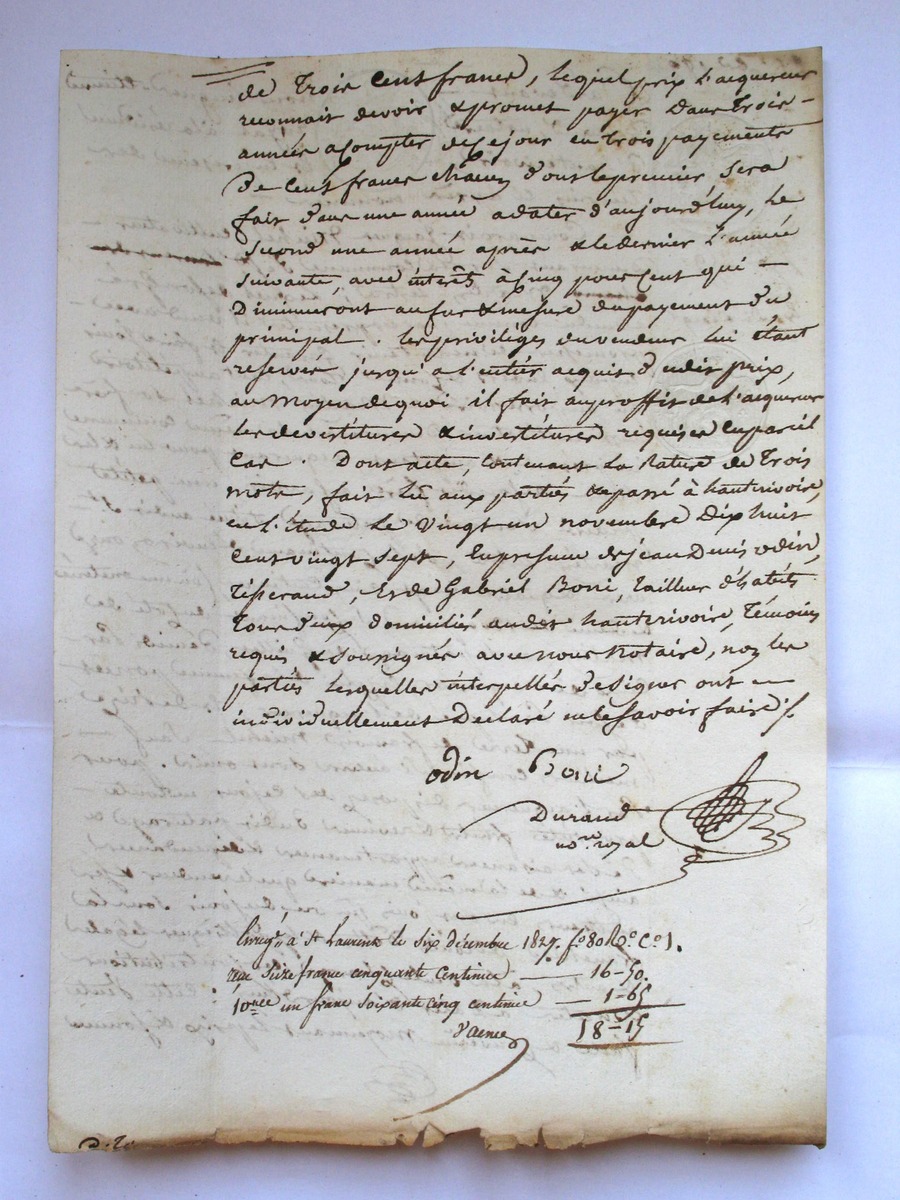 de trois cent francs, lequel prix l'acquereur
reconnait devoir & promet payer dans trois -
années acompter decejour en trois payements
de cent francs chacun dont le premier sera
fait dans une année adater d'aujourd'huy, le
second une année après & le dernier l'année
suivante, avec intérêts à cinq pour cent qui -
diminueront au fur & mesure du payement du
principal. les privilèges du vendeur lui étant
reservés jusqu'a l'entier acquit dudit prix,
au moyen de quoi il fait au proffit de l'acquereur
les devestitures & investitures requises en pareil
cas. Dont acte, contenant la rature de trois
mots, fait lû aux parties & passé à hauterivoire,
en l'étude le vingt un novembre dix huit
cent vingt sept, en presence de jean Denis odin,
tisserand, et de Gabriel Boni, tailleur d'habits
tous deux domiciliés audit hauterivoire, témoins
requis & soussignés avec nous Notaire, non les
parties lesquelles interpellées de signer ont -
individuellement declaré ne le savoir faire ./.
odin Boni
Durand
no.re royal
Enreg.é à St Laurent le six décembre 1827. fo 80 Ro Co 1.
reçu seize francs cinquante centimes — 16-50.
10ème un franc soixante cinq centimes — 1-65
18-15